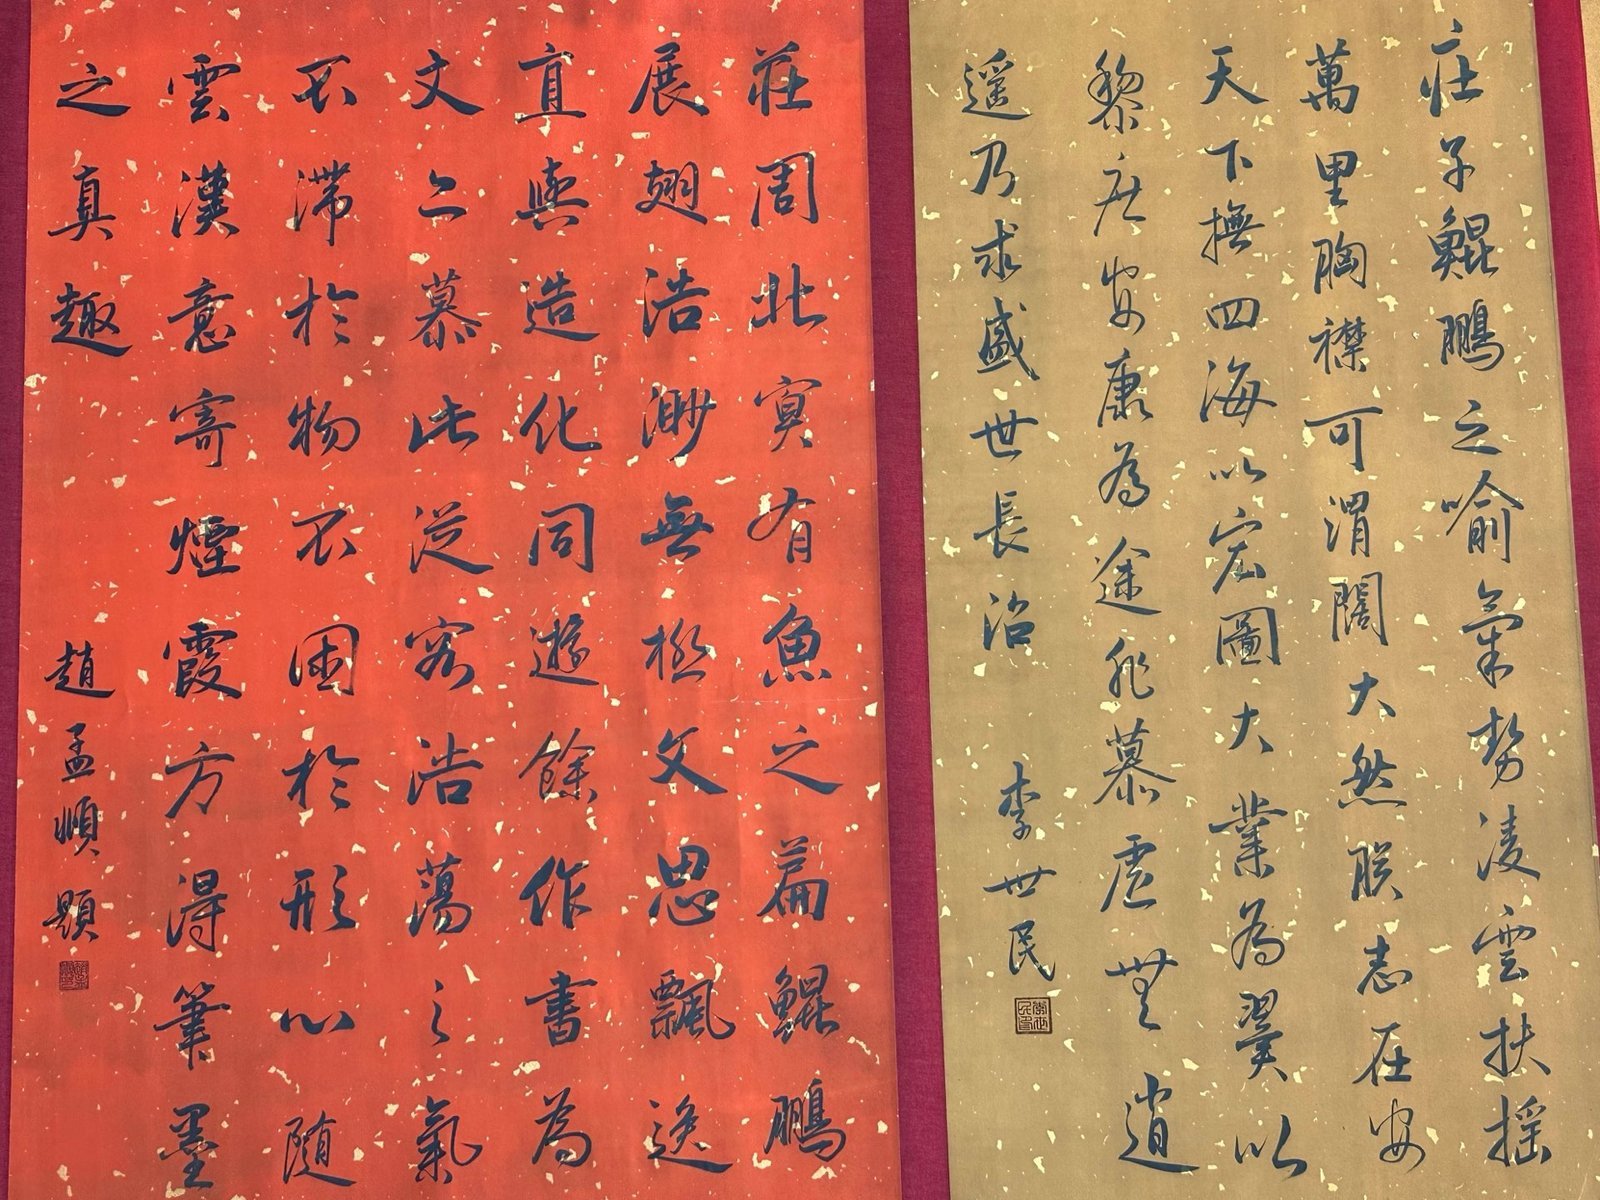 莊子鯤鵬之喻氣勢凌雲扶搖
萬里胸襟可謂闊大然朕志在安
天下撫四海以宏圖大業為翼以
黎庶安康為途非慕虛無逍
遙乃求盛世長治
李世民
莊周北冥有魚之篇鯤鵬
展翅浩渺無極文思飄逸
直與造化同遊餘作書為
文亦慕此從容浩蕩之氣
不滯於物不困於形心隨
雲漢意寄煙霞方得筆墨
之真趣
趙孟頫題